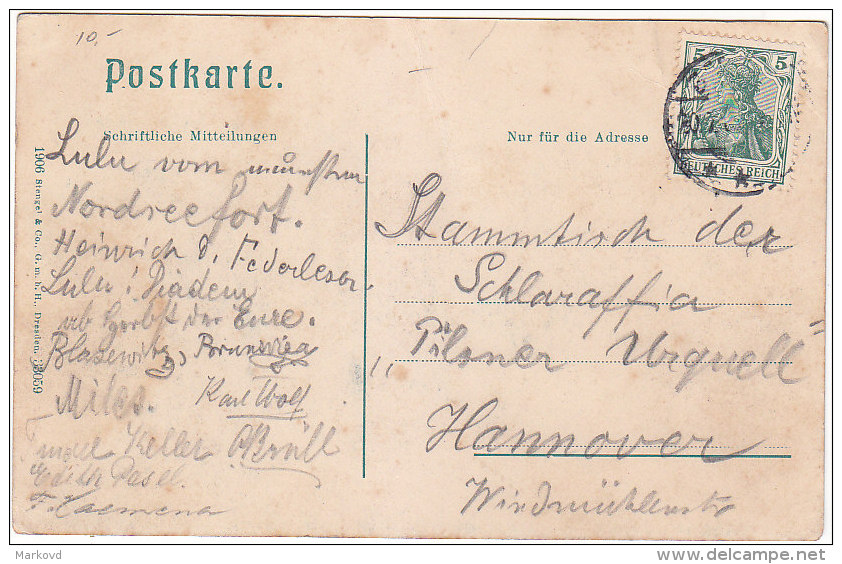 10,-
Postkarte.
Schriftliche Mitteilungen
Nur für die Adresse
5 5
DEUTSCHES REICH
1906 Stengel & Co., G. m. b. H., Dresden.
Lulu vom
Nordseefort.
Heinrich d. Federleser
Lulu!
ab Herbst der Eure.
Blasewitz,
Miles.
Karl Wolf
Keller Brüll
F. Haemena
Stammtisch der
Schlaraffia
"Pilsner Urquell"
Hannover
Windmühlenstr
Markovd
delcampe.net